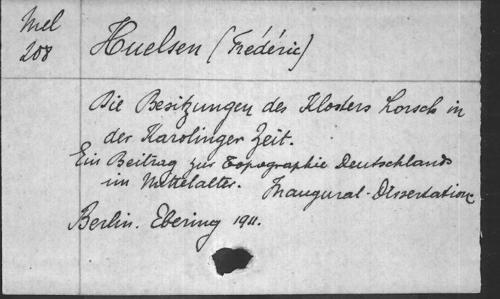 Mel
208
Huelsen (Frédéric)
Die Besitzungen des Klosters Lorsch in
der Karolinger Zeit.
Ein Beitrag zur Topographie Deutschlands
im Mittelalter. Inaugural-Dissertation
Berlin. Ebering 1911.